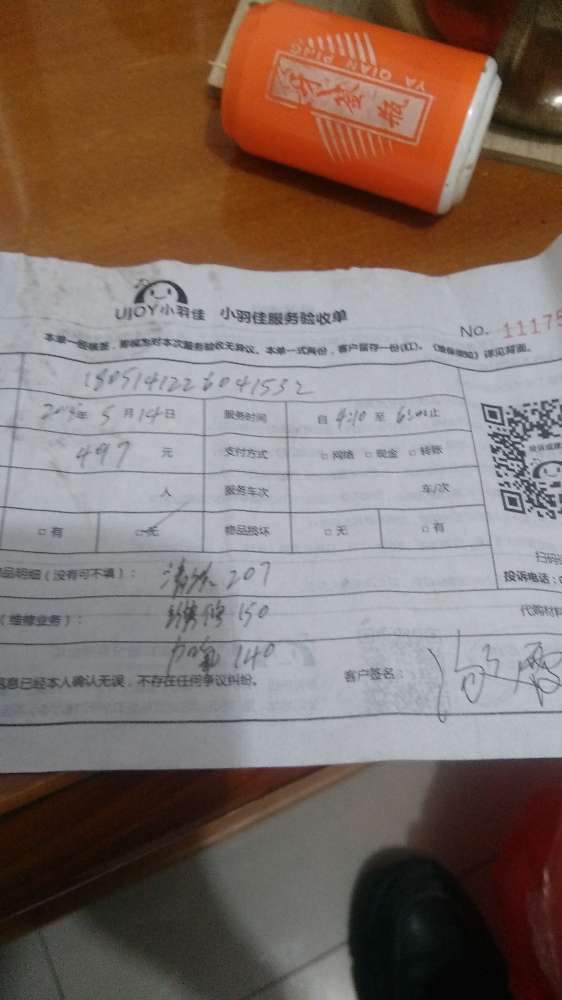 YA QIAN PING
牙签瓶
UJOY小羽佳 小羽佳服务验收单
No. 11175
本单一经签, 本单一式两份，客户留存一份(红)。《维保须知》详见背面。
1805141226041532
年 5 月 14 日 服务时间 自 4:10 至 止
497 元 支付方式 □ 网络 □ 现金 □ 转账
人 服务车次 车/次
□ 有 □ 无 物品损坏 □ 无 □ 有
扫码
品明细（没有可不填）： 清洗 207 投诉电话：0
（维修业务）： 150 代购材料
加氟 140
信息已经本人确认无误，不存在任何争议纠纷。 客户签名：